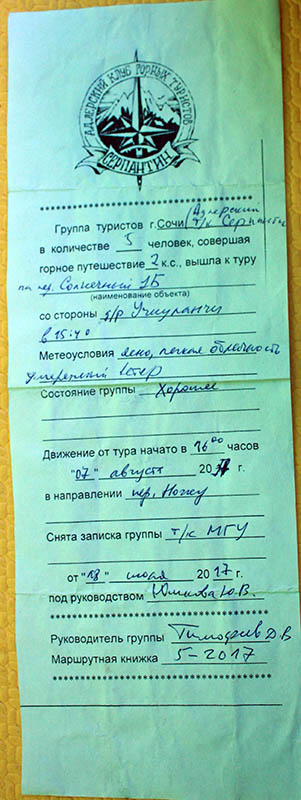 АДЛЕРСКИЙ КЛУБ ГОРНЫХ ТУРИСТОВ
СЕРПАНТИН
Группа туристов г.Сочи/Адлерский
т/к Серпантин
в количестве 5 человек, совершая
горное путешествие 2 к.с., вышла к туру
на пер. Солнечный 1Б
(наименование объекта)
со стороны д/р Учкуланчи
в 15:40
Метеоусловия ясно, легкая облачность
умеренный ветер
Состояние группы Хорошее
Движение от тура начато в 16 00 часов
"07" августа 2017 г.
в направлении пер. Ножу
Снята записка группы т/к МГУ
от "18" июля 2017 г.
под руководством Ю.В.
Руководитель группы Тимофеев Д В
Маршрутная книжка 5-2017